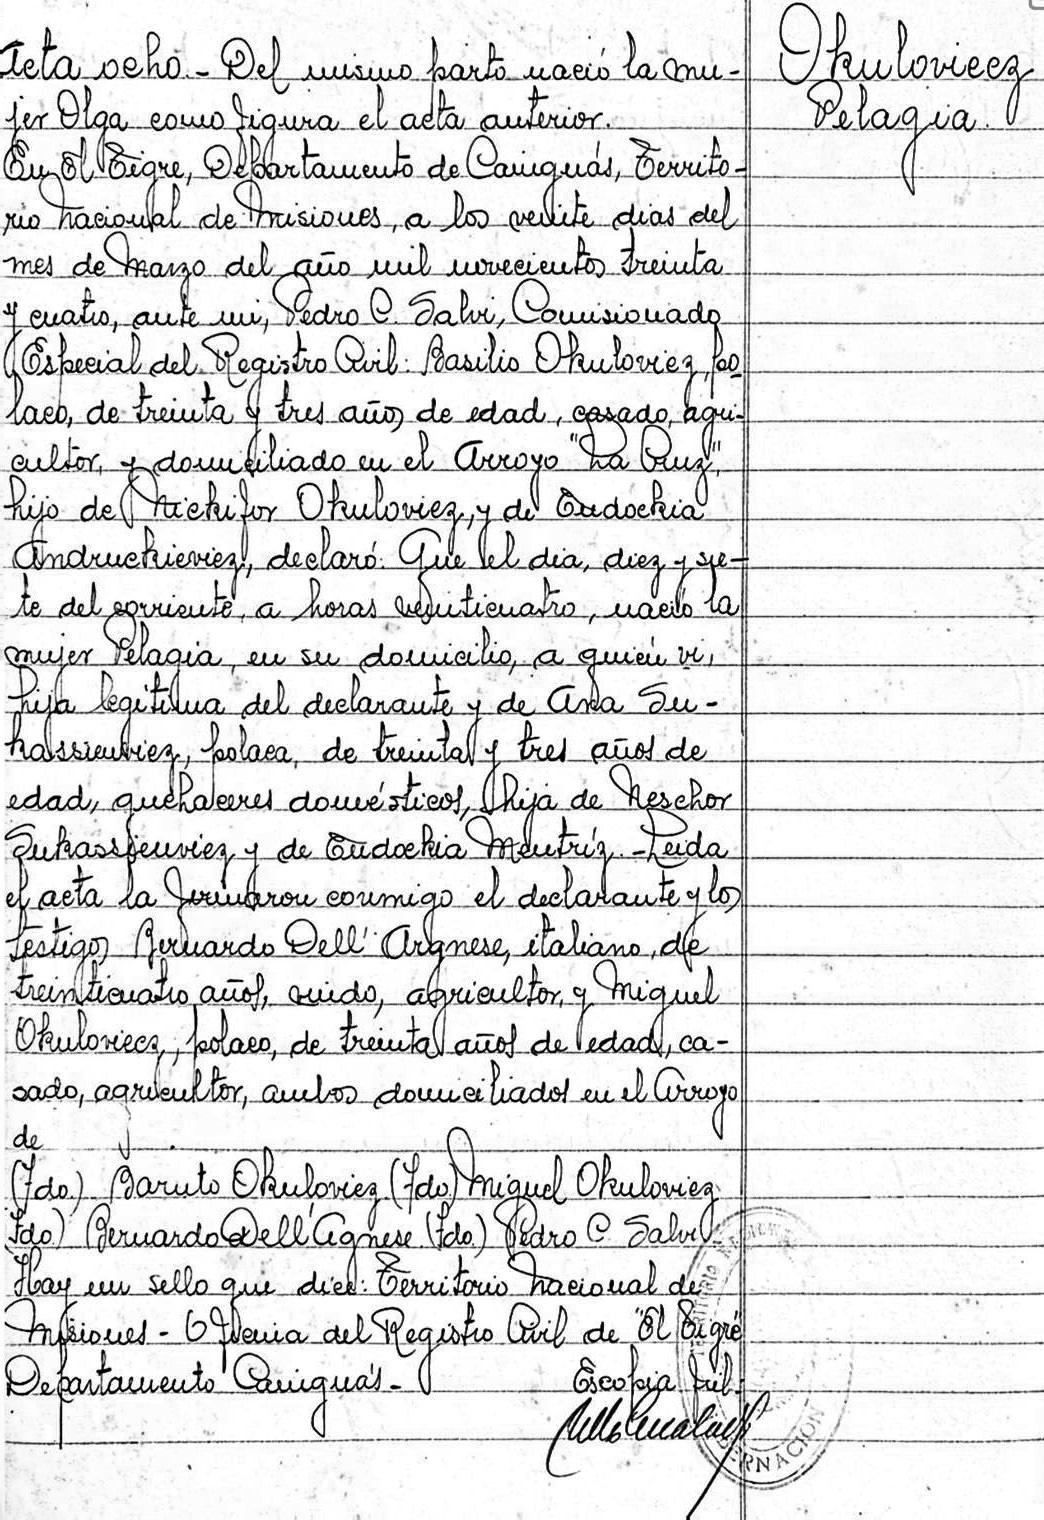 Acta ocho.- Del mismo parto nació la mu-
jer Olga como figura el acta anterior.
Okuloviecz
Pelagia.
En El Tigre, Departamento de Cainguás, Territo-
rio Nacional de Misiones, a los veinte dias del
mes de Marzo del año mil novecientos treinta
y cuatro, ante mi, Pedro C. Salvi, Comisionado
Especial del Registro Civil: Basilio Okuloviez, po-
laco, de treinta y tres años de edad, casado, agri-
cultor, y domiciliado en el Arroyo "La Cruz",
hijo de Nickifor Okuloviez, y de Eudockia
Andruckieviez, declaró: Que el dia, diez y sie-
te del corriente, a horas veinticuatro, nació la
mujer Pelagia, en su domicilio, a quien vi,
hija legítima del declarante y de Ana Su-
kassieuviez, polaca, de treinta y tres años de
edad, quehaceres domésticos, hija de Neschor
Sukassieuviez y de Eudockia Mentríz.- Leida
el acta la firmaron conmigo el declarante y los
testigos Bernardo Dell' Argnese, italiano, de
treinticuatro años, viudo, agricultor, y Miguel
Okuloviecz, polaco, de treinta años de edad, ca-
sado, agricultor, ambos domiciliados en el Arroyo
de
(Fdo.) Baruto Okuloviez (Fdo.) Miguel Okuloviez
Fdo.) Bernardo Dell' Agnese. (Fdo.) Pedro C. Salvi.
Hay un sello que dice: Territorio Nacional de
Misiones - Oficina del Registro Civil de "El Tigre
Departamento Cainguás.-
Es copia fiel.